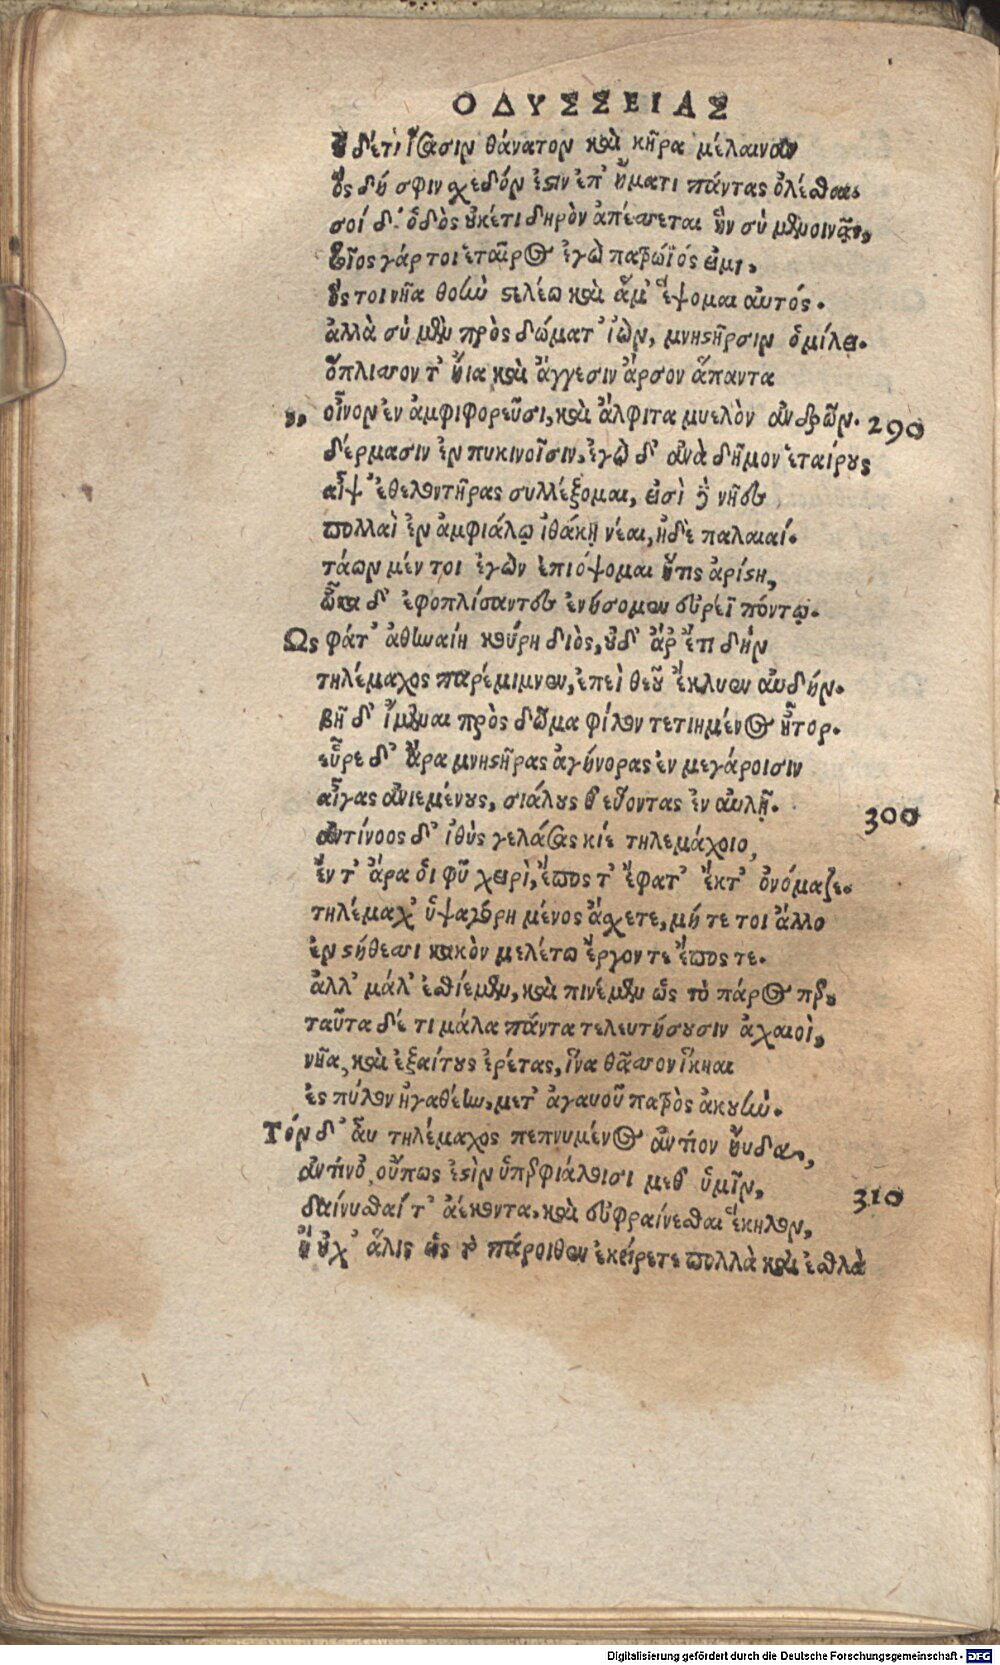 ΟΔΥΣΣΕΙΑΣ
οὐδέ τι ἴσασιν θάνατον καὶ κῆρα μέλαιναν
ὃς δή σφιν σχεδόν ἐστιν ἐπ' ἤματι πάντας ὀλέσθαι.
σοί δ' ὁδὸς οὐκέτι δηρὸν ἀπέσσεται ἣν σὺ μενοινᾷς,
τοῖος γάρ τοι ἑταῖρος ἐγὼ πατρώϊός εἰμι,
ὅς τοι νῆα θοὴν στελέω καὶ ἅμ' ἕψομαι αὐτός.
ἀλλὰ σὺ μὲν πρὸς δώματ' ἰὼν, μνηστῆρσιν ὁμίλει.
ὅπλισσόν τ' ἤϊα καὶ ἄγγεσιν ἄρσον ἅπαντα
,, οἶνον ἐν ἀμφιφορεῦσι, καὶ ἄλφιτα μυελὸν ἀνδρῶν. 290
δέρμασιν ἐν πυκινοῖσιν, ἐγὼ δ' ἀνὰ δῆμον ἑταίρους
αἶψ' ἐθελοντῆρας συλλέξομαι, εἰσὶ δὲ νῆες
πολλαὶ ἐν ἀμφιάλῳ ἰθάκῃ νέαι, ἠδὲ παλαιαί.
τάων μέν τοι ἐγὼν ἐπιόψομαι ἥτις ἀρίστη,
ὦκα δ' ἐφοπλίσαντες ἐνήσομεν εὐρέϊ πόντῳ.
Ως φάτ' ἀθηναίη κούρη διὸς, οὐδ' ἄρ' ἔτι δὴν
τηλέμαχος παρέμιμνεν, ἐπεὶ θεοῦ ἔκλυεν αὐδήν.
βῆ δ' ἴμεναι πρὸς δῶμα φίλον τετιημένος ἦτορ.
εὗρε δ' ἄρα μνηστῆρας ἀγήνορας ἐν μεγάροισιν
αἶγας ἀνιεμένους, σιάλους θ' εὕοντας ἐν αὐλῇ. 300
ἀντίνοος δ' ἰθὺς γελάσας κίε τηλεμάχοιο,
ἔν τ' ἄρα οἱ φῦ χειρὶ, ἔπος τ' ἔφατ' ἔκτ' ὀνόμαζε.
τηλέμαχ' ὑψαγόρη μένος ἄσχετε, μή τέ τοι ἄλλο
ἐν στήθεσσι κακὸν μελέτω ἔργον τε ἔπος τε.
ἀλλ' μάλ' ἐσθίεμεν, καὶ πινέμεν ὡς τὸ πάρος περ
ταῦτα δέ τι μάλα πάντα τελευτήσουσιν ἀχαιοὶ,
νῆα, καὶ ἐξαίτους ἐρέτας, ἵνα θᾶσσον ἵκηαι
ἐς πύλον ἠγαθέην, μετ' ἀγαυοῦ πατρὸς ἀκουήν.
Τὸν δ' αὖ τηλέμαχος πεπνυμένος ἀντίον ηὔδα,
ἀντίνο', οὔπως ἐστὶν ὑπερφιάλοισι μεθ' ὑμῖν, 310
δαίνυσθαί τ' ἀέκοντα, καὶ εὐφραίνεσθαι ἕκηλον,
ἢ οὐχ' ἅλις ὡς τὸ πάροιθεν ἐκείρετε πολλὰ καὶ ἐσθλὰ
Digitalisierung gefördert durch die Deutsche Forschungsgemeinschaft - DFG